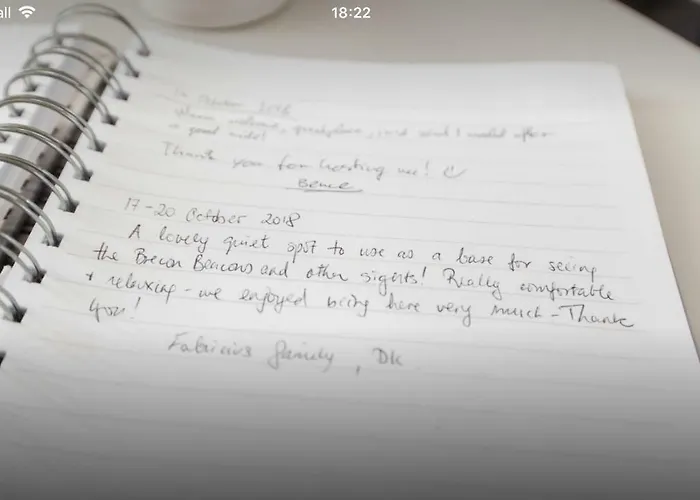 all 18:22
October 2018
Thank you for hosting me!
Bence
17-20 October 2018
A lovely quiet spot to use as a base for seeing
the Brecon Beacons and other sights! Really comfortable
+ relaxing - we enjoyed being here very much - Thank
you!
Fabricius family, DK